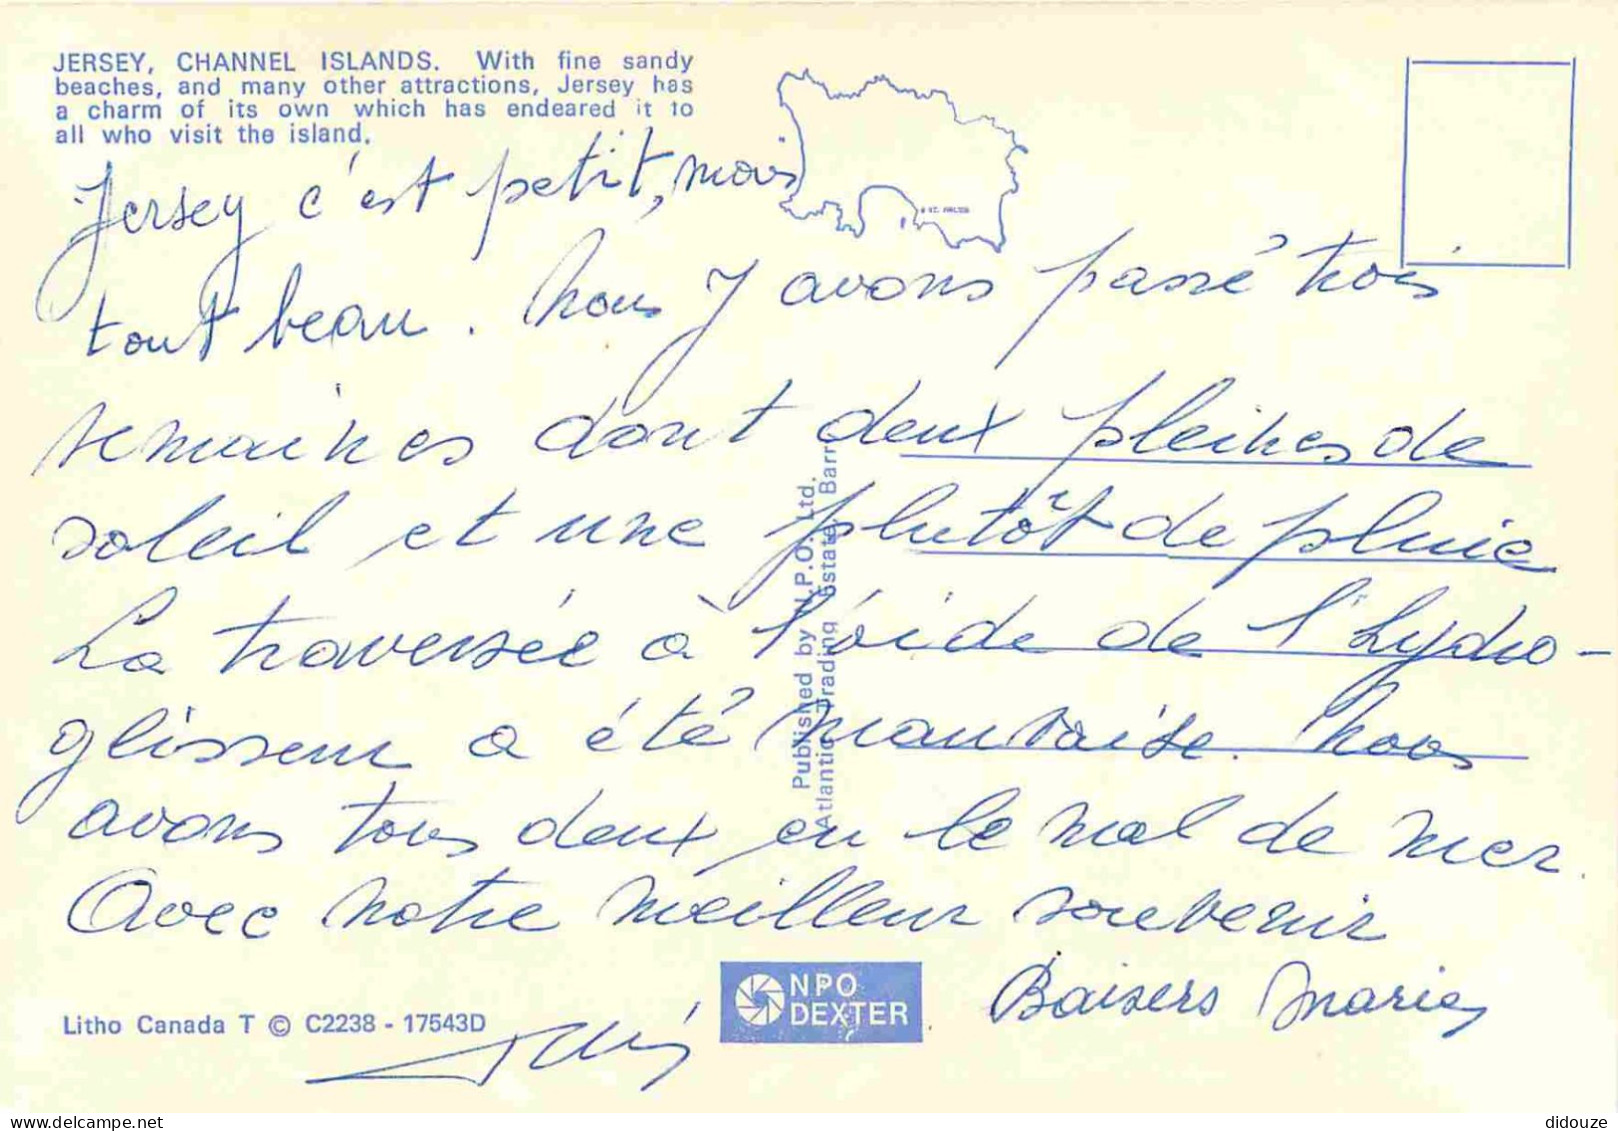 JERSEY, CHANNEL ISLANDS. With fine sandy
beaches, and many other attractions, Jersey has
a charm of its own which has endeared it to
all who visit the island.
Jersey c'est petit, mais
tout beau. Nous y avons passé trois
semaines dont deux pleines de
soleil et une plutôt de pluie
La traversée à l'aide de l'hydro-
glisseur a été mauvaise. Nous
avons tous deux eu le mal de mer.
Avec notre meilleur souvenir
Baisers Marie
Published by N.P.O. Ltd.
Atlantic Trading Estate, Barry
NPO
DEXTER
Litho Canada T © C2238 - 17543D
delcampe.net
didouze